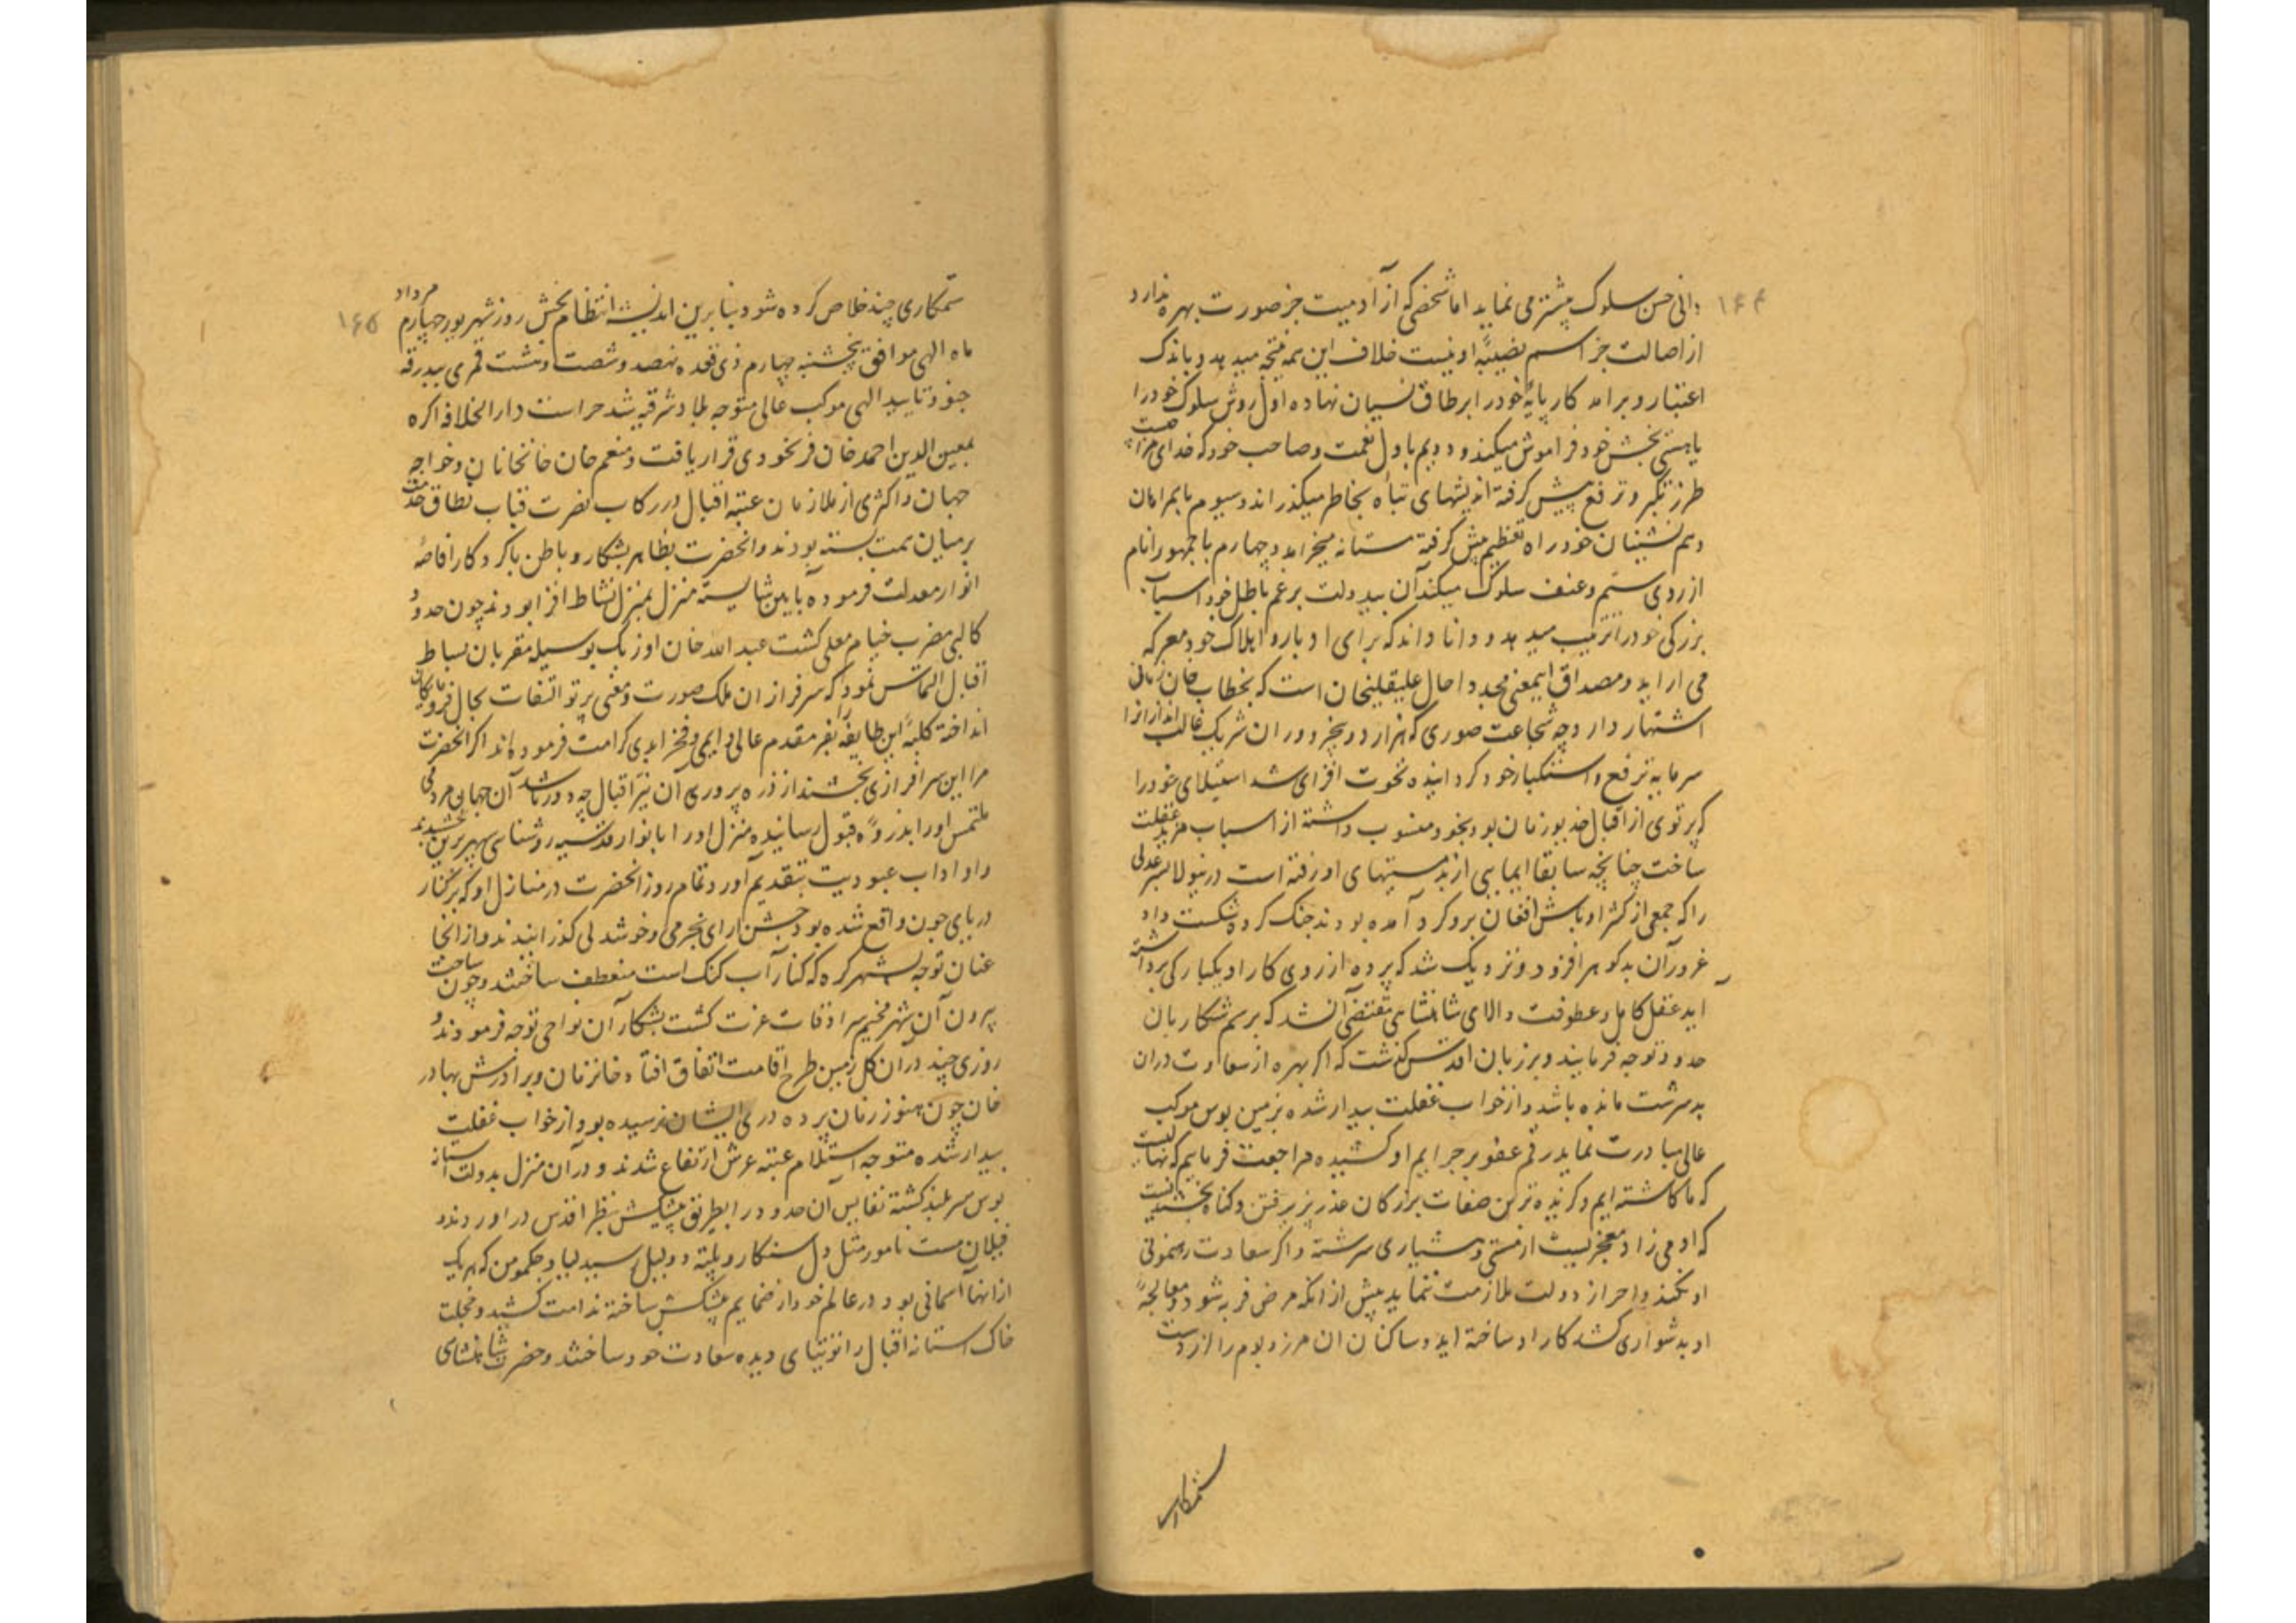 ۱۶۴
دانی حسن سلوک بیشتر می نماید اما شخصی که از آدمیت جز صورت بهره ندارد
از اصالت جز اسم نصیبۀ او نیست خلاف این همه نتیجه میدهد و باندک
اعتبار و برامد کار پایۀ خود را بر طاق نسیان نهاده اول روش سلوک خود را
با هستی بخش خود فراموش میکند و دویم با ول نعمت و صاحب خود که خدای
طرز تکبر و ترفع پیش گرفته اندیشهای تباه بخاطر میگذراند و سیوم با همرامان
و همنشینان خود راه تعظیم پیش گرفته مستانه میخرامد و چهارم با جمهور انام
از روی ستم و عنف سلوک میکند آن بیدولت برعم باطل خود اسباب
بزرگی خود را ترتیب میدهد و دانا داند که برای ادبار و اهلاک خود معرکه
می اراید و مصداق اینمعنی مجددا حال علیقلیخان است که بخطاب خان زمانی
اشتهار دارد چه شجاعت صوری که هزار دد و بخرد در ان شریک غالب اند انرا
سرمایه ترفع و استکبار خود گردانیده نخوت افزای شد استیلای خود را
که پرتوی از اقبال خدیو زمان بود بخود منسوب داشته از اسباب مزید غفلت
ساخت چنانچه سابقا ایمایی از بدمستیهای او رفته است درینولا پسر عدلی
را که جمعی از کثر اوباش افغان برو گرد آمده بودند جنگ کرده شکست داد
غرور آن بدگوهر افزود و نزدیک شد که پرده از روی کار او یکبارگی برداشته
اید عقل کامل و عطوفت والای شاهنشاهی مقتضی آن شد که برسم شکار بان
حدود توجه فرمایند و بر زبان اقدس گذشت که اگر بهره از سعادت دران
بدسرشت مانده باشد و از خواب غفلت بیدار شده بزمین بوس موکب
عالی مبادرت نماید رقم عفو بر جرایم او کشیده مراجعت فرماییم که نهالیست
که ما کاشته ایم و گزیده ترین صفات بزرگان عذر پذیرفتن و گناه بخشیدنست
که ادمی زاد معجزیست از مستی و هشیاری سرشته و اگر سعادت رهنمونی
او نکند و احراز دولت ملازمت ننماید پیش از انکه مرض فربه شود و معالجۀ
او بدشواری کشد کار او ساخته اید و ساکنان ان مرز و بوم را از دست
ستمکاری
۱۶۵
ستمکاری چند خلاص کرده شود بنا برین اندیشه انتظام بخش روز شهریور چهارم مرداد
ماه الهی موافق پنجشنبه چهارم ذی قعده نهصد و شصت و هشت قمری ببدرقه
جنود تایید الهی موکب عالی متوجه بلاد شرقیه شد حراست دار الخلافه اکره
بمعین الدین احمد خان فرنخودی قرار یافت و منعم خان خانخانان و خواجه
جهان و اکثری از ملازمان عتبه اقبال در رکاب نصرت قباب نطاق خدمت
بر میان همت بسته بودند و انحضرت بظاهر بشکار و باطن باکردکار افاضۀ
انوار معدلت فرموده بایین شایسته منزل بمنزل نشاط افزا بودند چون حدود
کالپی مضرب خیام معلی گشت عبد الله خان اوزبک بوسیله مقربان بساط
اقبال التماس نمود که سرفرازان ملک صورت و معنی پرتو التفات بحال فرومایگان
انداخته کلبۀ این طایفه را بفر مقدم عالی دایمی و فخر ابدی کرامت فرموده اند اگر انحضرت
مرا این سرافرازی بخشند از ذره پروری آن نیر اقبال چه دور باشد آن جهان مردمی
ملتمس او را بذروۀ قبول رسانیده منزل او را بانوار قدسیه روشنای سپهر برین بخشیدند
و او اداب عبودیت بتقدیم آورد و تمام روز انحضرت در منازل او که بر کنار
دریای جون واقع شده بود جشن ارای خرمی و خوشدلی گذرانیدند و از انجا
عنان توجه بشهر کره که کنار آب گنگ است منعطف ساختند و چون ساحت
بیرون آن شهر مخیم سرادقات عزت گشت بشکار آن نواحی توجه فرمودند و
روزی چند دران گل زمین طرح اقامت اتفاق افتاد خانزمان و برادرش بهادر
خان چون هنوز زمان پرده دری ایشان نرسیده بود از خواب غفلت
بیدار شده متوجه استلام عتبه عرش ارتفاع شدند و دران منزل بدولت استانه
بوس سربلند گشته نفایس آن حدود را بطریق پیشکش بنظر اقدس در اوردند و
فیلان مست نامور مثل دل سنکار و پلته و دلیل و سبدلیا و جکموهن که هر یک
ازانها آسمانی بود در عالم خود از ضمایم پیشکش ساخته ندامت کشید و خجلت
خاک استانه اقبال را توتیای دیده سعادت خود ساختند و حضرت شاهنشاهی